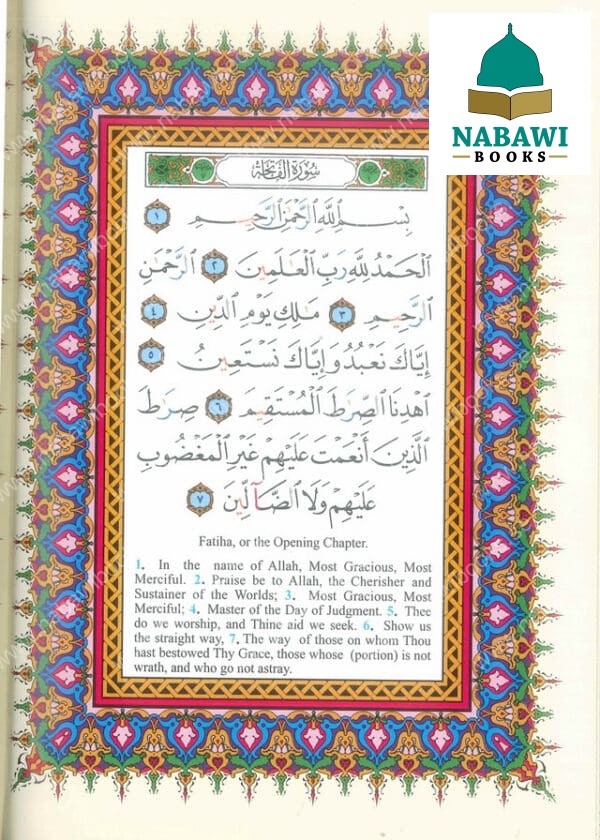 NABAWI
BOOKS
سُورَةُ الفَاتِحَةِ
بِسْمِ اللَّهِ الرَّحْمَٰنِ الرَّحِيمِ ١
الْحَمْدُ لِلَّهِ رَبِّ الْعَالَمِينَ ٢ الرَّحْمَٰنِ
الرَّحِيمِ ٣ مَالِكِ يَوْمِ الدِّينِ ٤
إِيَّاكَ نَعْبُدُ وَإِيَّاكَ نَسْتَعِينُ ٥
اهْدِنَا الصِّرَاطَ الْمُسْتَقِيمَ ٦ صِرَاطَ
الَّذِينَ أَنْعَمْتَ عَلَيْهِمْ غَيْرِ الْمَغْضُوبِ
عَلَيْهِمْ وَلَا الضَّآلِّينَ ٧
Fatiha, or the Opening Chapter.
1. In the name of Allah, Most Gracious, Most
Merciful. 2. Praise be to Allah, the Cherisher and
Sustainer of the Worlds; 3. Most Gracious, Most
Merciful; 4. Master of the Day of Judgment. 5. Thee
do we worship, and Thine aid we seek. 6. Show us
the straight way, 7. The way of those on whom Thou
hast bestowed Thy Grace, those whose (portion) is not
wrath, and who go not astray.